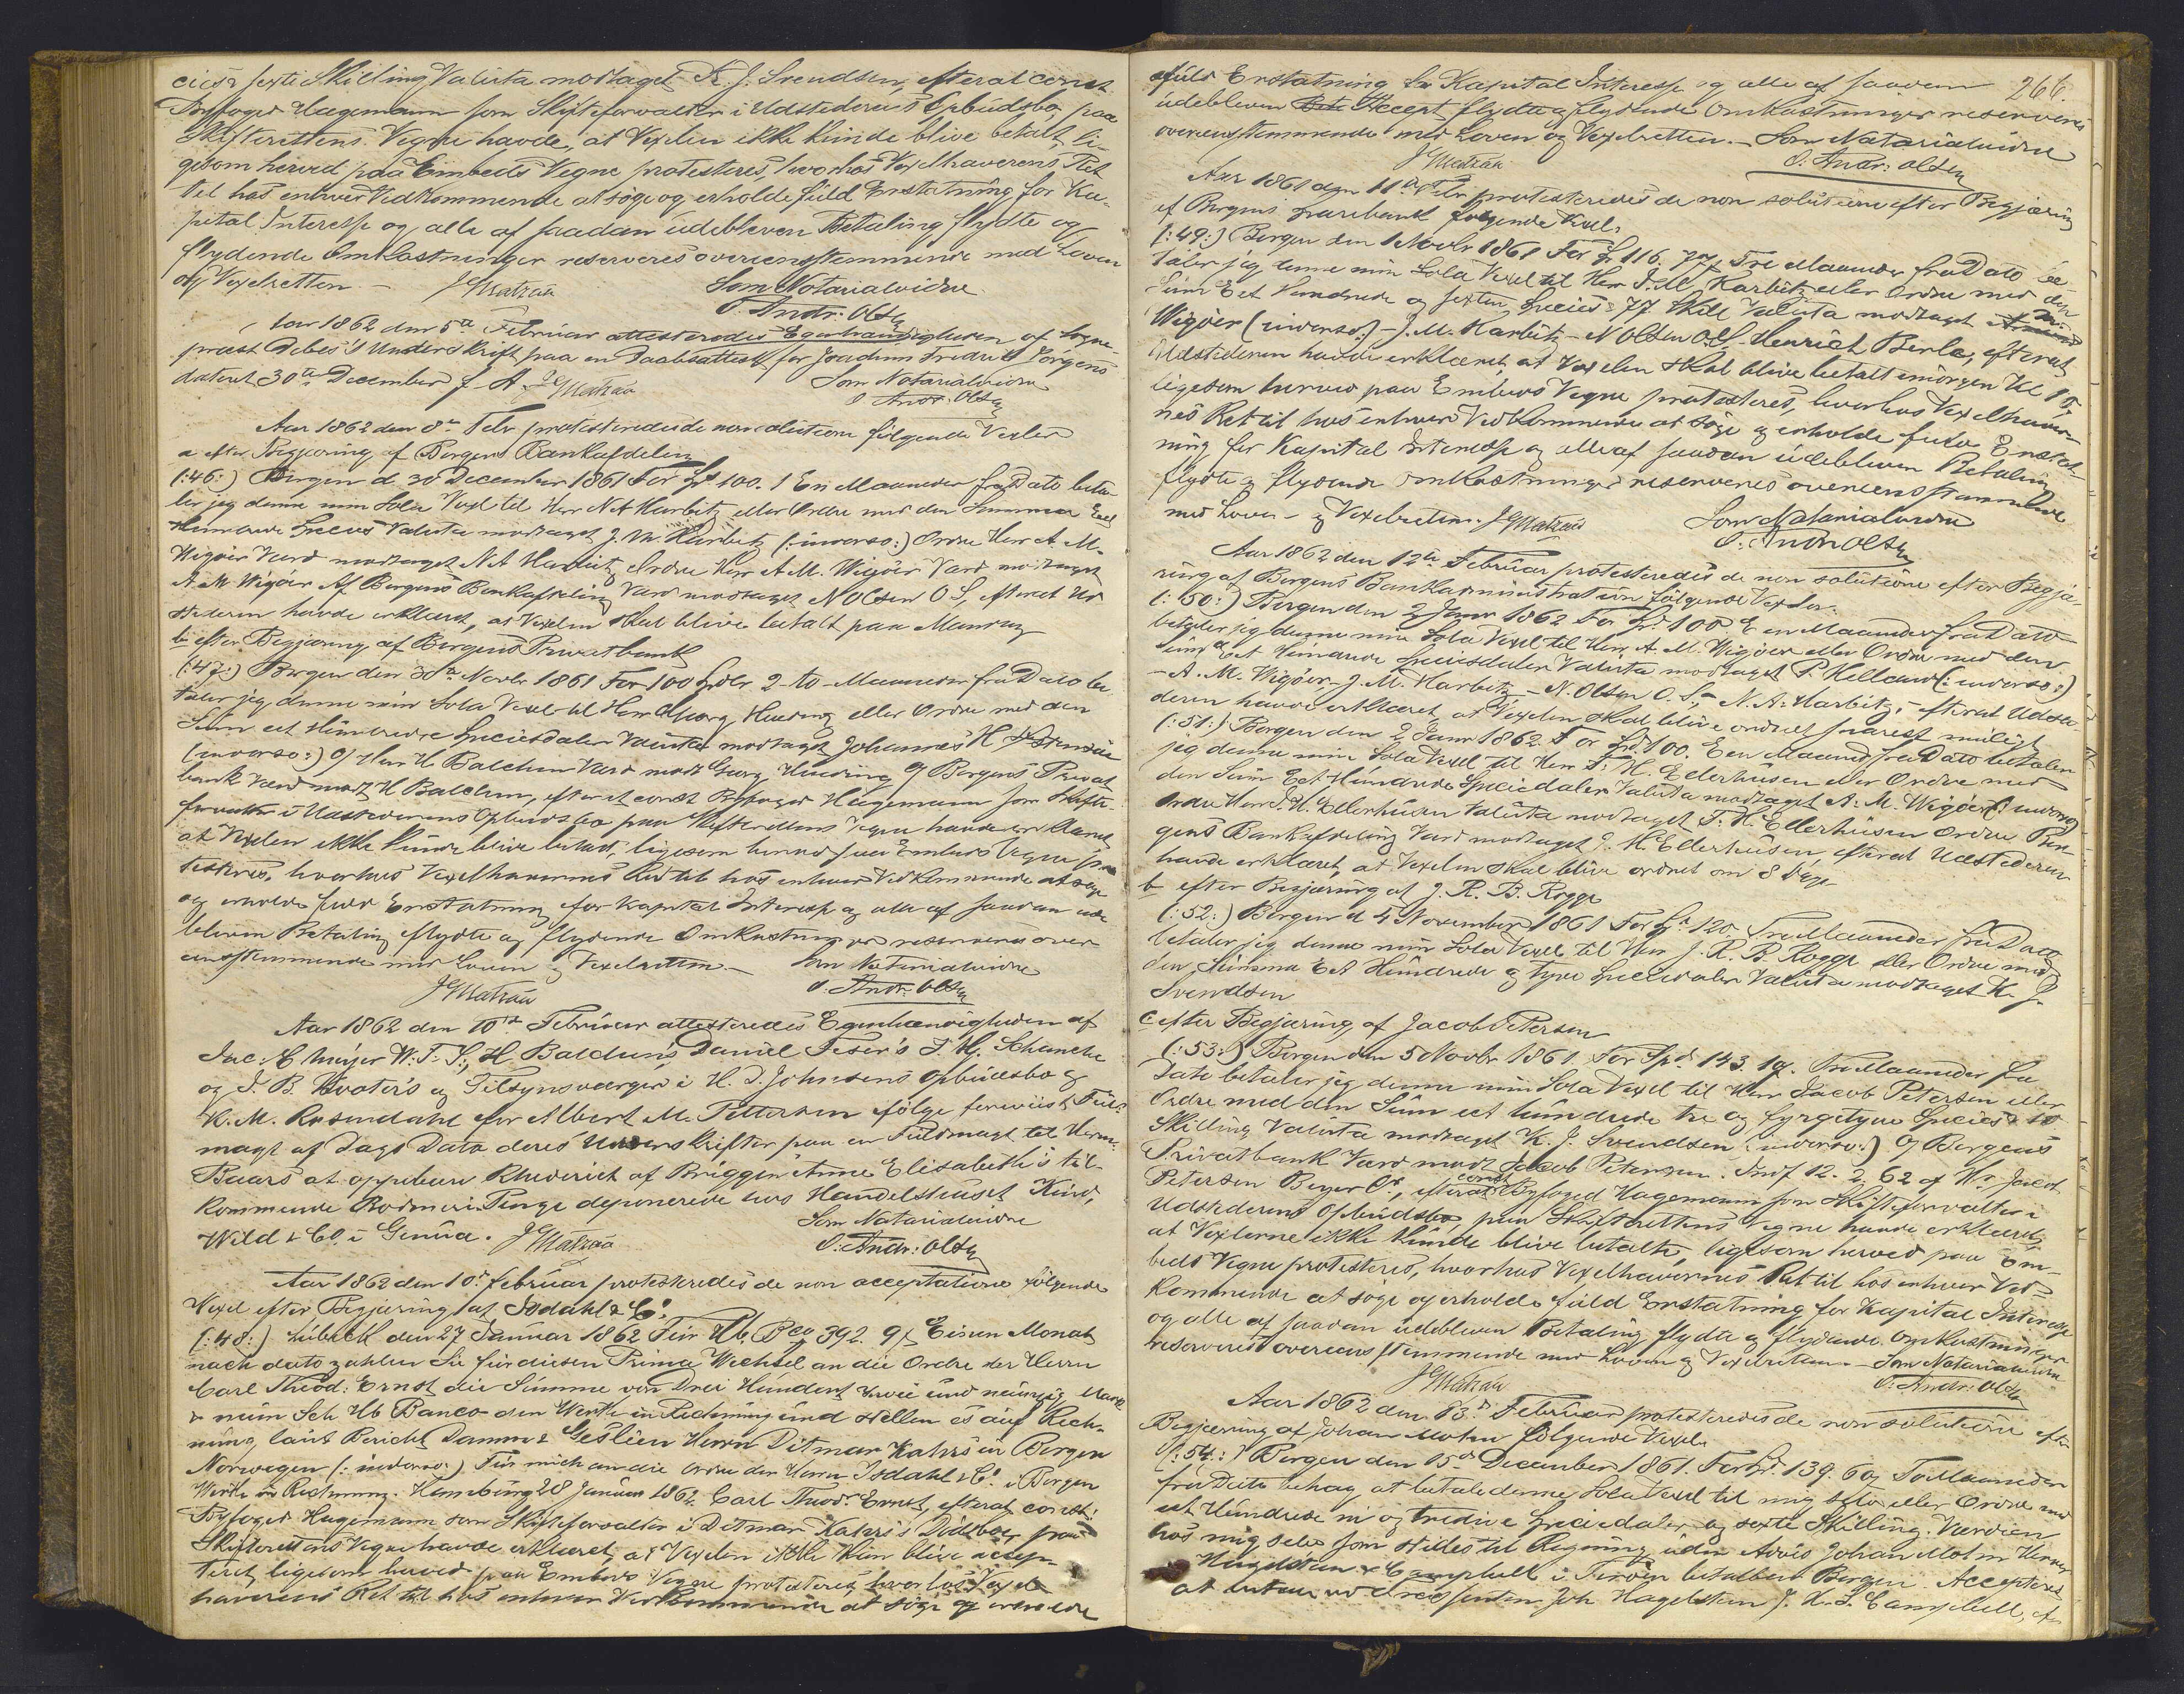 cies & sexti Skilling Valuta modtaget K. J. Svendsen, efterat const
Byfoged Hagemann som Skifteforvalter i Udstederens Opbudsbo, paa
Skifterettens Vegne havde, at Vexelen ikke kunde blive betalt, li-
gesom herved paa Embeds Vegne protesteres, hvorhos Vexelhaverens Ret
til hos enhver Vedkommende at søge og erholde fuld Erstatning for Ka-
pital Interesse og alle af saadan udebleven Betaling flydte og
flydende Omkostninger reserveres overeensstemmende med Loven
og Vexelretten – JGMatzau Som Notarialvidne
O. Andr: Olsen
Aar 1862 den 5te Februar attesteredes Egenhændigheden af Sogne-
præst Debes's Underskrift paa en Daabsattest for Joachim Fredrik Jørgens
dateret 30te December f. A. JGMatzau Som Notarialvidne
O Andr: Olsen
Aar 1862 den 8de Febr protesteredes de non solutione følgende Vexler
a efter Begjæring af Bergens Bankafdeling
(:46:) Bergen d 30 December 1861 For Spd 100. 1 En Maaneder fra Dato beta-
ler jeg denne min Sola Vexl til Herr N A Harbitz eller Ordre med den Summa Eet
Hundrede Species Valuta modtaget J. M. Harbitz (:inverso:) Ordre Herr A. M.
Wigöer Værd modtaget N A Harbitz Ordre Herr A M. Wigöer Værd modtaget
A M Wigöer Af Bergens Bankafdeling Værd modtaget N Olsen O S, efterat Ud
stederen havde erklæret, at Vexelen skal blive betalt paa Mandag
b efter Begjæring af Bergens Privatbank
(:47:) Bergen den 30te Novbr 1861 For 100 Spdlr 2 - to - Maaneder fra Dato be
taler jeg denne min Sola Vexel til Herr Georg Hueding eller Ordre med den
Sum eet Hundrede Speciesdaler Valuta modtaget Johannes H
(:inverso:) O/ Herr H Balchen Værd modt Georg Hueding O/ Bergens Privat
bank Værd modt H Balchen, efterat const Byfoged Hagemann som Skifte-
forvalter i Udstederens Opbudsbo paa Skifterettens Vegne havde erklæret
at Vexelen ikke kunde blive betalt, ligesom herved paa Embeds Vegne pro
testeres, hvorhos Vexelhavernes Ret til hos enhver Vedkommende at søge
og erholde fuld Erstatning for Kapital Interesse og alle af saadan ude
bleven Betaling flydte og flydende Omkostninger reserveres over
eensstemmende med Loven og Vexelretten. – Som Notarialvidne
JGMatzau O. Andr: Olsen
Aar 1862 den 10de Februar attesteredes Egenhændigheden af
Jac: E Meyer W. F. S., H. Balchens, Daniel Feser's F. Hj. Schancke
og J. B. Kvoters og Tilsynsværger i H. J. Johnsens Opbudsbo og
K. M. Rosendahl for Albert M. Pettersen ifølge foreviist Fuld-
magt af Dags Dato deres Underskrifter paa en Fuldmagt til Herm:
Baars at oppebære Rhederiet af Briggen Anne Elisabeth's til-
kommende Bodmeri Penge deponerede hos Handelshuset Kund,
Wild & Co. i Genua. JGMatzau Som Notarialvidne
O: Andr: Olsen
Aar 1862 den 10de februar protesteredes de non acceptatione følgende
Vexel efter Begjæring af Isdahl & Co.
(:48:) Lübeck den 27 Januar 1862 Für Hb Bco 392. 9 ß Einen Monat
nach dato zahlen Sie für diesen Prima Wechsel an die Ordre der Herrn
Carl Theod: Ernst die Summe von Drei Hundert zwei und neunzig Mark
& neun Sch Hb Banco den Werth in Rechnung und stellen es auf Rech-
nung laut Bericht Damm & Geslien Herrn Ditmar Kahrs in Bergen
Norwegen (:inverso:) Für mich an die Ordre der Herrn Isdahl & Co. i Bergen
Werth in Rechnung. Hamburg 28 Januar 1862. Carl Theod. Ernst, efterat const:
Byfoged Hagemann som Skifteforvalter i Ditmar Kahrs's Dødsboe paa
Skifterettens Vegne havde erklæret, at Vexelen ikke kan blive accep-
teret, ligesom herved paa Embeds Vegne protesteres hvorhos Vexel-
haverens Ret til hos enhver Vedkommende at søge og erholde
266.
fuld Erstatning for Kapital Interesse og alle af saadan
udebleven Accept flydte og flydende Omkostninger reserveres
overeensstemmende med Loven og Vexelretten. – Som Notarialvidne
JGMatzau O: Andr: Olsen
Aar 1861 den 11te Febr protesteredes de non solutione efter Begjæring
af Bergens Sparebank følgende Vexel.
(:49:) Bergen den 1 Novbr 1861 For Spd 116. 77 ß Tre Maaneder fra Dato be-
taler jeg denne min Sola Vexel til Herr J. M. Harbitz eller Ordre med den
Sum Eet Hundrede og sexten Species 77 Skill Valuta modtaget A. M.
Wigöer (:inverso:) – J. M. Harbitz – N Olsen O S, Henrich Berle, efterat
Udstederen havde erklæret, at Vexelen skal blive betalt imorgen Kl 1
ligesom herved paa Embeds Vegne protesteres, hvorhos Vexelhaver-
nes Ret til hos enhver Vedkommende at søge og erholde fuld Erstat-
ning for Kapital Interesse og alle af saadan udebleven Betaling
flydte og flydende Omkostninger reserveres overeensstemmende
med Loven – og Vexelretten. JGMatzau Som Notarialvidne
O. Andr Olsen
Aar 1862 den 12te Februar protesteredes de non solutione efter Begjæ-
ring af Bergens Bankadministration følgende Vexler.
(:50:) Bergen den 2 Janr 1862 For Spd 100 Een Maaneder fra Dato
betaler jeg denne min Sola Vexel til Herr A. M. Wigöer eller Ordre med den
Sum Eet Hundrede Speciesdaler Valuta modtaget P. Helland (:inverso:)
– A. M. Wigöer, – J. M. Harbitz, – N. Olsen O. S., N. A. Harbitz, – efterat Udste-
deren havde erklæret, at Vexelen skal blive ordnet snarest muligt
(:51:) Bergen den 2 Janr 1862. For Spd 100. Een Maaned fra Dato betaler
jeg denne min Sola Vexel til Herr F. H. Ellerhusen eller Ordre med
den Sum Eet Hundrede Speciedaler Valuta modtaget A. M. Wigöer (:inverso:)
Ordre Herr F. H. Ellerhusen Valuta modtaget F. H. Ellerhusen Ordre Ber-
gens Bankafdeling Værd modtaget F. H. Ellerhusen, efterat Udstederen
havde erklæret, at Vexelen skal blive ordnet om 8 Dage
b efter Begjæring af J. R. B. Rogge
(:52:) Bergen d 4 November 1861 For Spd 120. Tre Maaneder fra Dato
betaler jeg denne min Sola Vexel til Herr J. R. B. Rogge eller Ordre med
den Summa Eet Hundrede og tyve Speciedaler Valuta modtaget K. J.
Svendsen
c efter Begjæring af Jacob Petersen
(:53:) Bergen den 5 Novbr 1861. For Spd. 143. 10 ß. Tre Maaneder fra
Dato betaler jeg denne min Sola Vexel til Herr Jacob Petersen eller
Ordre med den Sum eet hundrede tre og fyrgetyve Species & 10
Skilling Valuta modtaget K. J. Svendsen (:inverso:) O/ Bergens
Privatbank Værd modt Jacob Petersen. Indf 12. 2 62 af Hr Jacob
Petersen Beyer Cs, efterat const Byfoged Hagemann som Skifteforvalter i
Udstederens Opbudsbo, paa Skifterettens Vegne havde erklæret,
at Vexlerne ikke kunde blive betalte, ligesom herved paa Em-
beds Vegne protesteres, hvorhos Vexelhavernes Ret til hos enhver Ved-
kommende at søge og erholde fuld Erstatning for Kapital Interesse
og alle af saadan udebleven Betaling flydte og flydende Omkostninger
reserveres overeensstemmende med Loven og Vexelretten. – Som Notarialvidne
JGMatzau O: Andr: Olsen
Aar 1862 den 13de Februar protesteredes de non solutione efter
Begjæring af Johan Mohn følgende Vexel.
(:54:) Bergen den 15de December 1861. For Spd. 139. 60 ß To Maaneder
fra Dato behag at betale denne Sola Vexel til mig selv eller Ordre med
eet Hundrede ni og tredive Speciedaler og sexti Skilling. Værdien
hos mig selv som stilles til Regning uden Advis Johan Mohn Herrer
Hagelsten & Campbell i Tervøen betalbar Bergen. Accepteres
at betale ved Joh Hagelsten J. K. S. Campbell, ef-